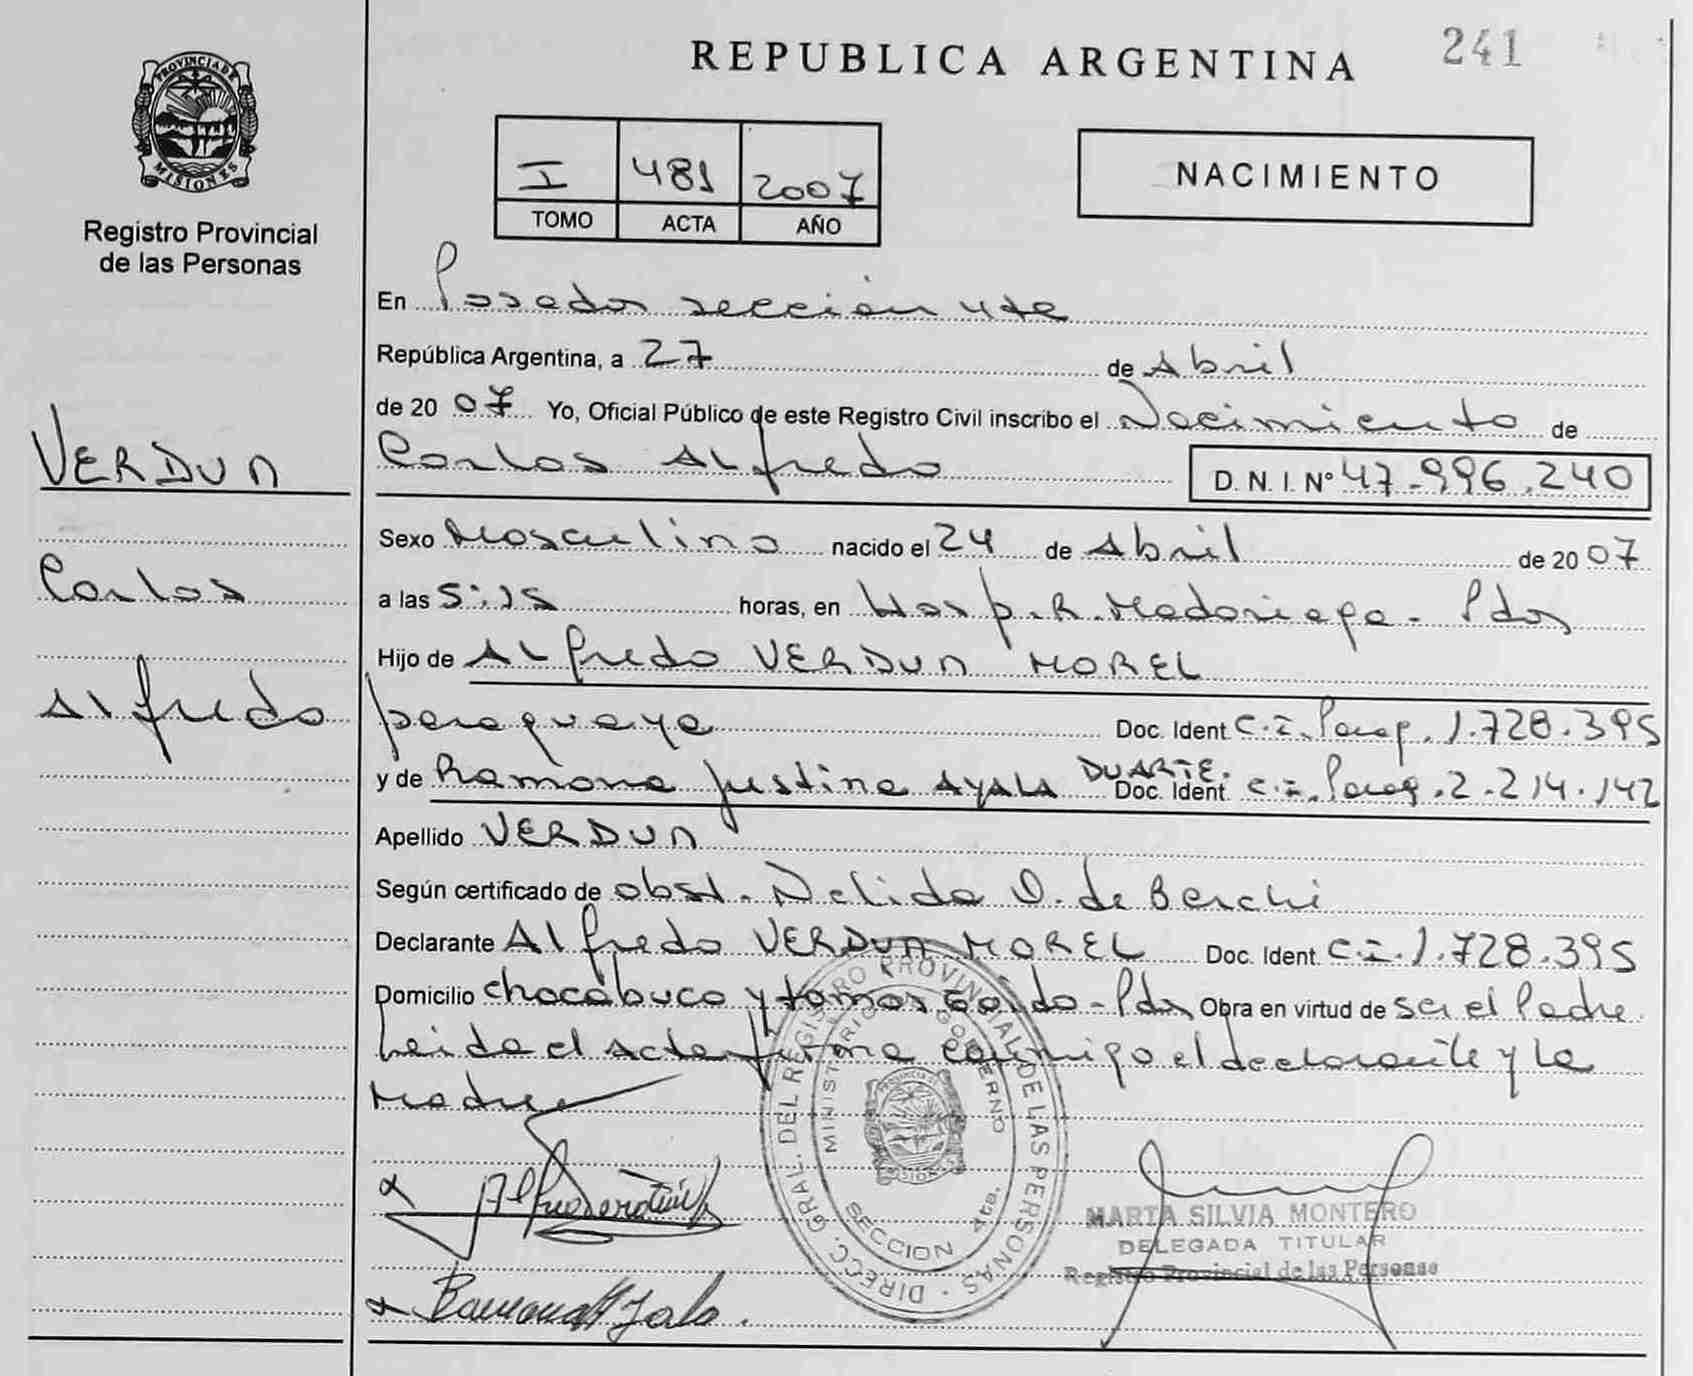 241
REPUBLICA ARGENTINA
PROVINCIA DE
MISIONES
Registro Provincial
de las Personas
I 481 2007
TOMO ACTA AÑO
NACIMIENTO
En Posadas sección 4ta
República Argentina, a 27 de Abril
de 20 07 Yo, Oficial Público de este Registro Civil inscribo el Nacimiento de
Carlos Alfredo D. N. I. Nº 47.996.240
VERDUN
Carlos
Alfredo
Sexo Masculino nacido el 24 de Abril de 20 07
a las 5:15 horas, en Hosp. R. Madariaga - Pdas
Hijo de Alfredo VERDUN MOREL
paraguaya Doc. Ident C.I. Parag. 1.728.395
y de Ramona Justina AYALA DUARTE. Doc. Ident. C.I. Parag. 2.214.142
Apellido VERDUN
Según certificado de obst. Nelida O. de Berchi
Declarante Alfredo VERDUN MOREL Doc. Ident. C.I. 1.728.395
Domicilio chacabuco y tomas Doc. - Pdas Obra en virtud de ser el Padre
Leida el acta firma conmigo el declarante y la
Madre
DIRECC. GRAL. DEL REGISTRO PROVINCIAL DE LAS PERSONAS
MINISTERIO GOBIERNO
SECCION 4ta.
MARTA SILVIA MONTERO
DELEGADA TITULAR
Registro Provincial de las Personas
Ramona Ayala.